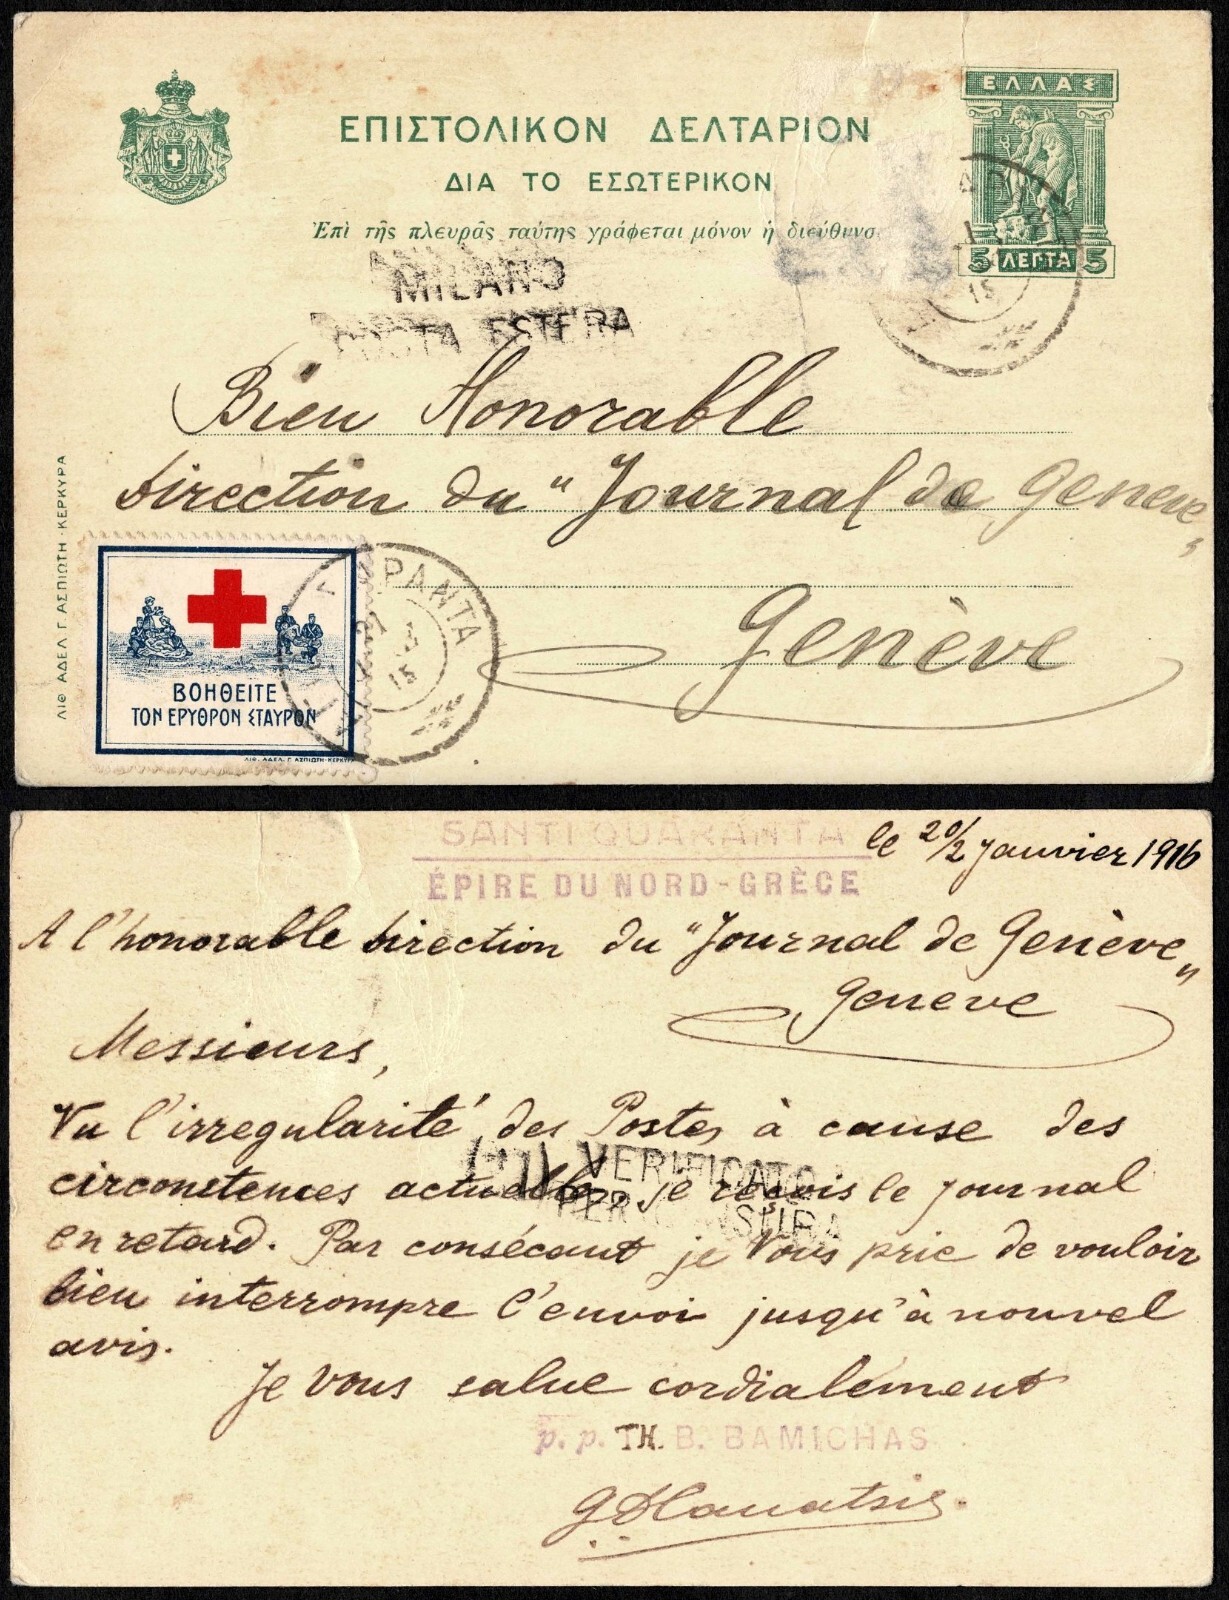 ΕΛΛΑΣ
ΕΠΙΣΤΟΛΙΚΟΝ ΔΕΛΤΑΡΙΟΝ
ΔΙΑ ΤΟ ΕΣΩΤΕΡΙΚΟΝ
Ἐπὶ τῆς πλευρᾶς ταύτης γράφεται μόνον ἡ διεύθυνσ
5 ΛΕΠΤΑ 5
15
MILANO
POSTA ESTERA
Bien Honorable
Direction du "Journal de Genève„
Genève
ΛΙΘ ΑΔΕΛ Γ ΑΣΠΙΩΤΗ · ΚΕΡΚΥΡΑ
ΒΟΗΘΕΙΤΕ
ΤΟΝ ΕΡΥΘΡΟΝ ΣΤΑΥΡΟΝ
ΛΙΘ. ΑΔΕΛ. Γ. ΑΣΠΙΩΤΗ-ΚΕΡΚΥΡΑ
ΡΑΝΤΑ
15
SANTI QUARANTA
ÉPIRE DU NORD-GRÈCE
le 20/2 Janvier 1916
A l'honorable Direction du "Journal de Genève„
Geneve
Messieurs,
Vu l'irregularité des Postes à cause des
circonstences actuelles, je reçois le journal
en retard. Par consécant je Vous prie de vouloir
bien interrompre l'envoi jusqu'à nouvel
avis.
VERIFICATO
PER CENSURA
Je vous salue cordialement
p. p. TH. B. BAMICHAS